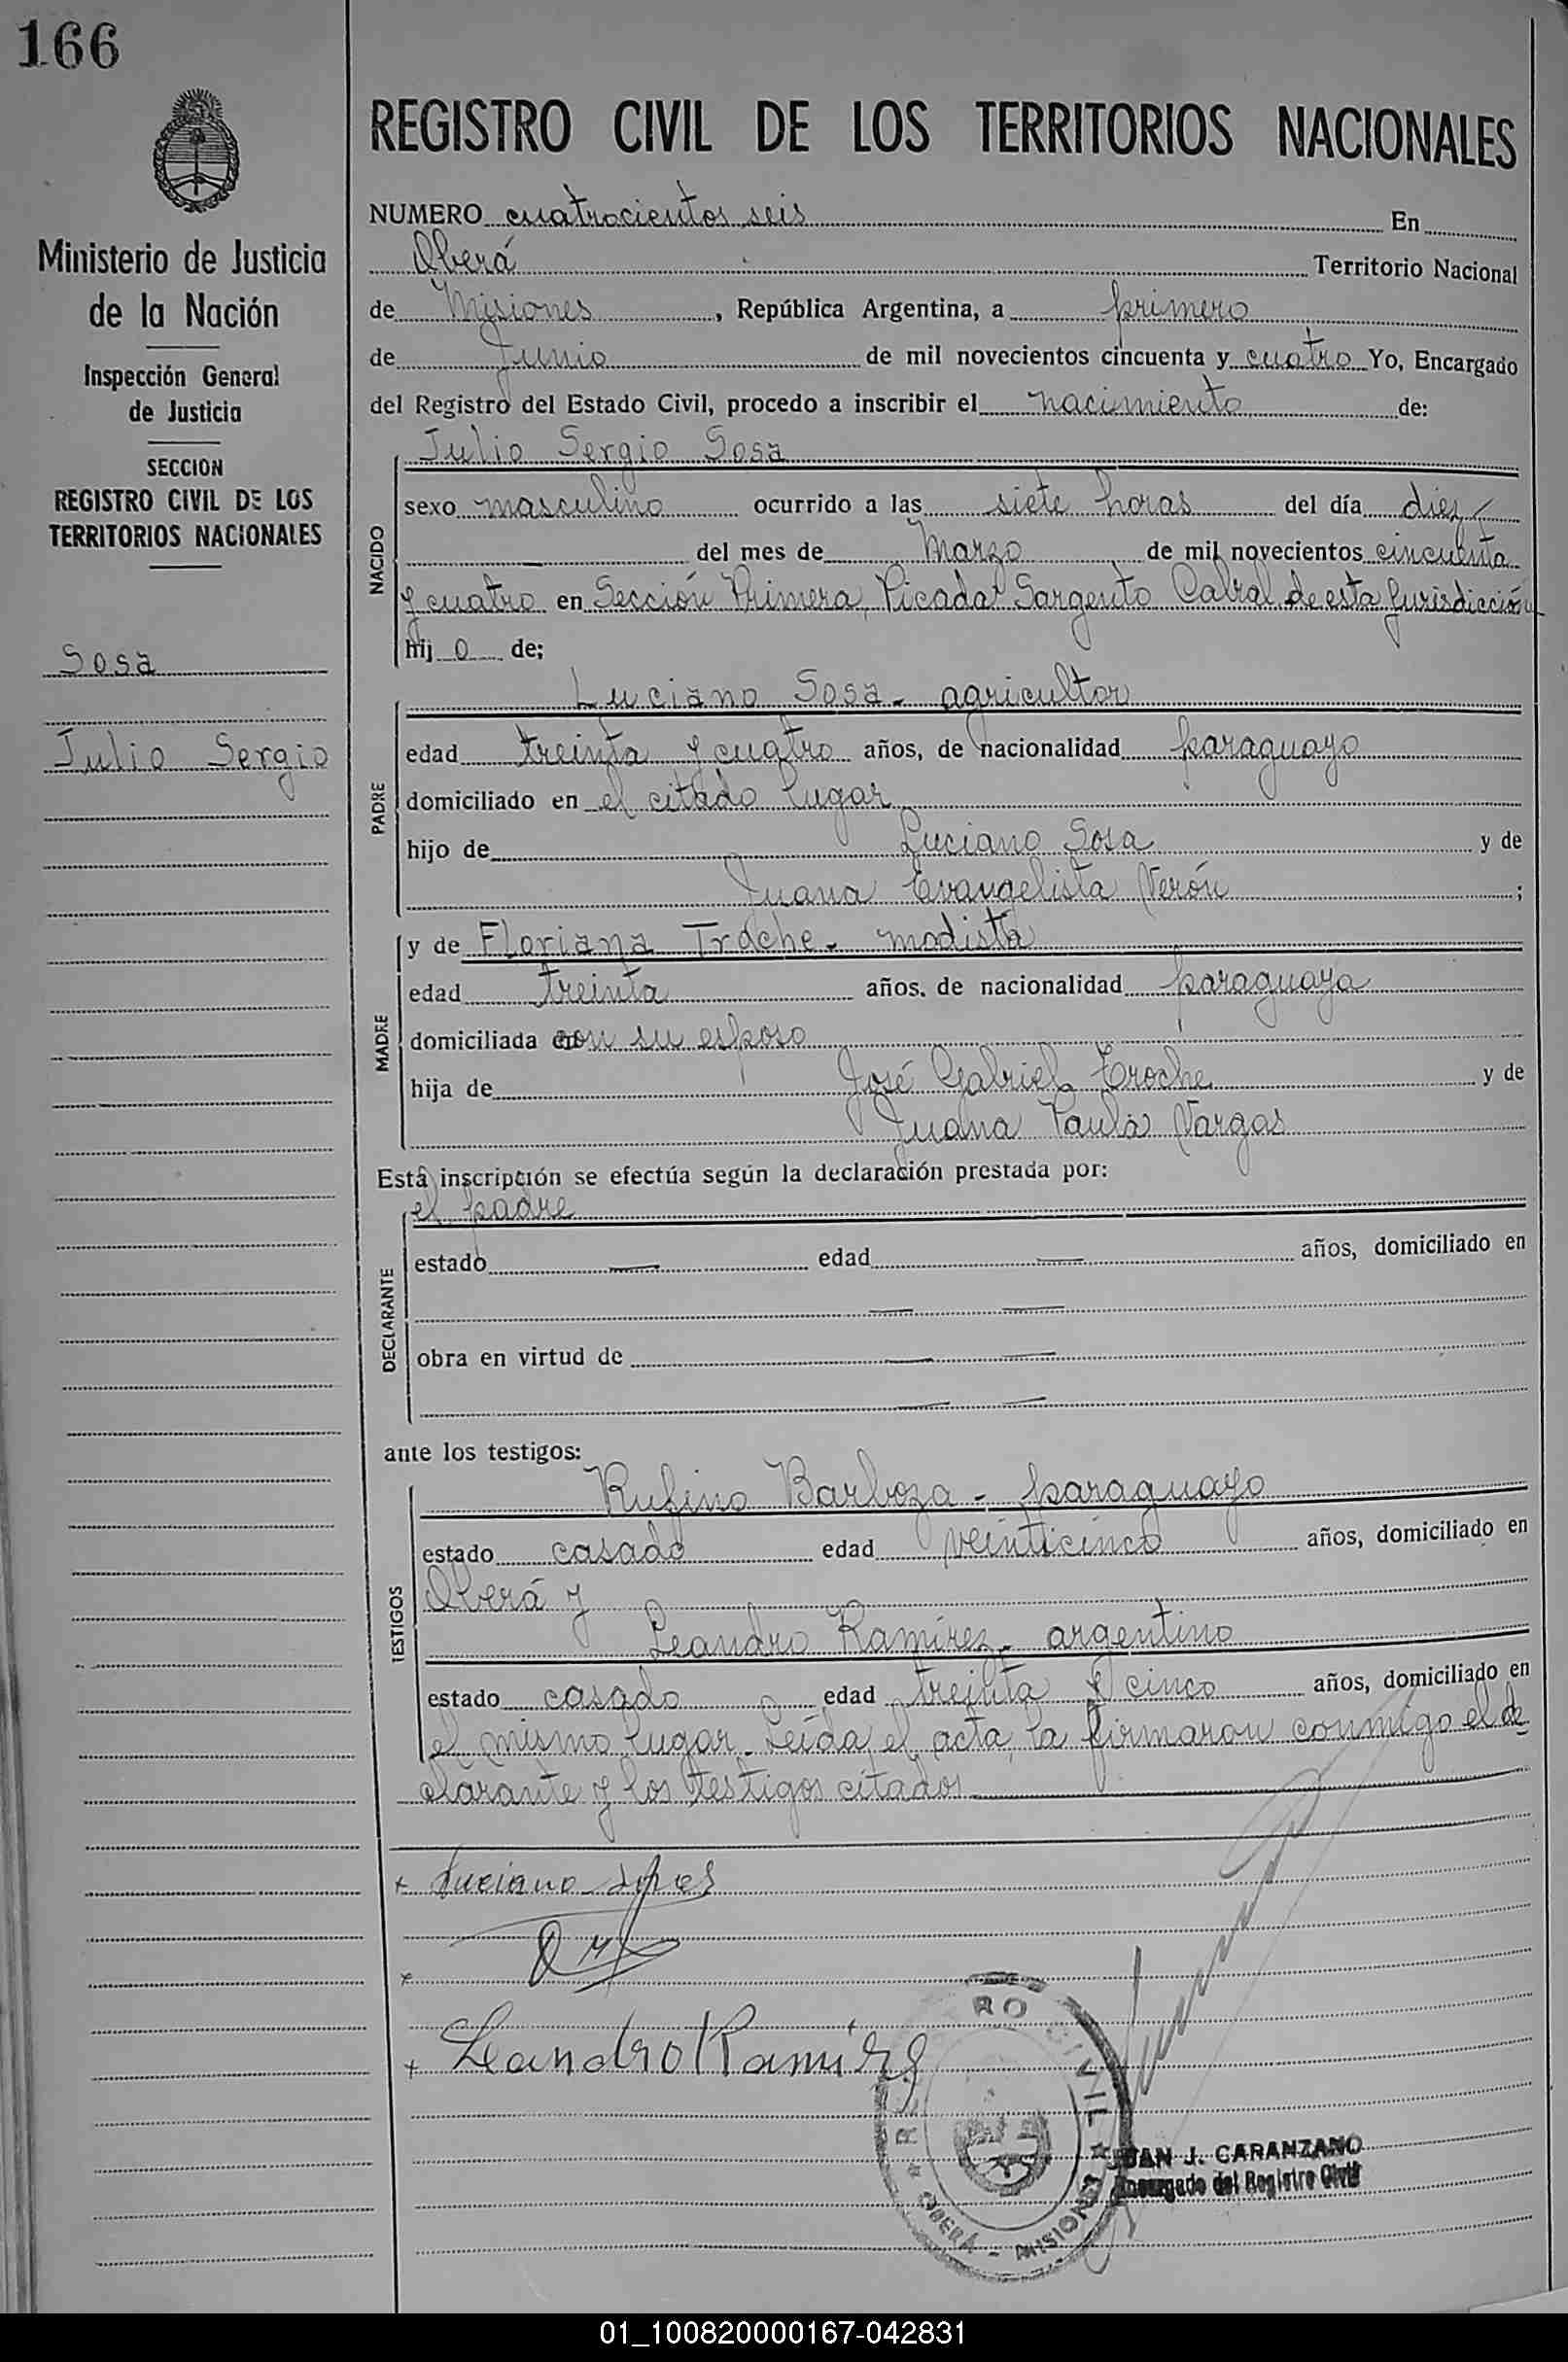 166
REGISTRO CIVIL DE LOS TERRITORIOS NACIONALES
Ministerio de Justicia
de la Nación
Inspección General
de Justicia
SECCION
REGISTRO CIVIL DE LOS
TERRITORIOS NACIONALES
Sosa
Julio Sergio
NUMERO cuatrocientos seis En
Oberá Territorio Nacional
de Misiones, República Argentina, a primero
de Junio de mil novecientos cincuenta y cuatro Yo, Encargado
del Registro del Estado Civil, procedo a inscribir el nacimiento de:
NACIDO
Julio Sergio Sosa
sexo masculino ocurrido a las siete horas del día diez
del mes de Marzo de mil novecientos cincuenta
y cuatro en Sección Primera, Picada Sargento Cabral de esta Jurisdicción
hij o de;
PADRE
Luciano Sosa - agricultor
edad treinta y cuatro años, de nacionalidad paraguayo
domiciliado en el citado lugar
hijo de Luciano Sosa y de
Juana Evangelista Verón ;
MADRE
y de Floriana Troche - modista
edad treinta años, de nacionalidad paraguaya
domiciliada con su esposo
hija de José Gabriel Troche y de
Juana Paula Vargas
Esta inscripción se efectúa según la declaración prestada por:
DECLARANTE
el padre
estado — edad — años, domiciliado en
— —
obra en virtud de — —
— —
ante los testigos:
TESTIGOS
Rufino Barboza - paraguayo
estado casado edad veinticinco años, domiciliado en
Oberá y
Leandro Ramírez - argentino
estado casado edad treinta y cinco años, domiciliado en
el mismo lugar. Leída el acta, la firmaron conmigo el de
clarante y los testigos citados
+ Luciano
+
+ Leandro Ramirez
RO CIVIL
OBERÁ - MISIONES
JUAN J. CARANZANO
Encargado del Registro Civil
01_100820000167-042831